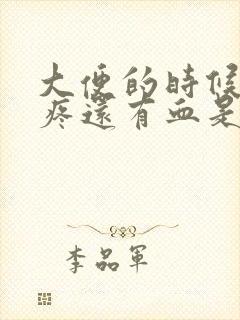 大便的時候
疼還有血是
李品軍